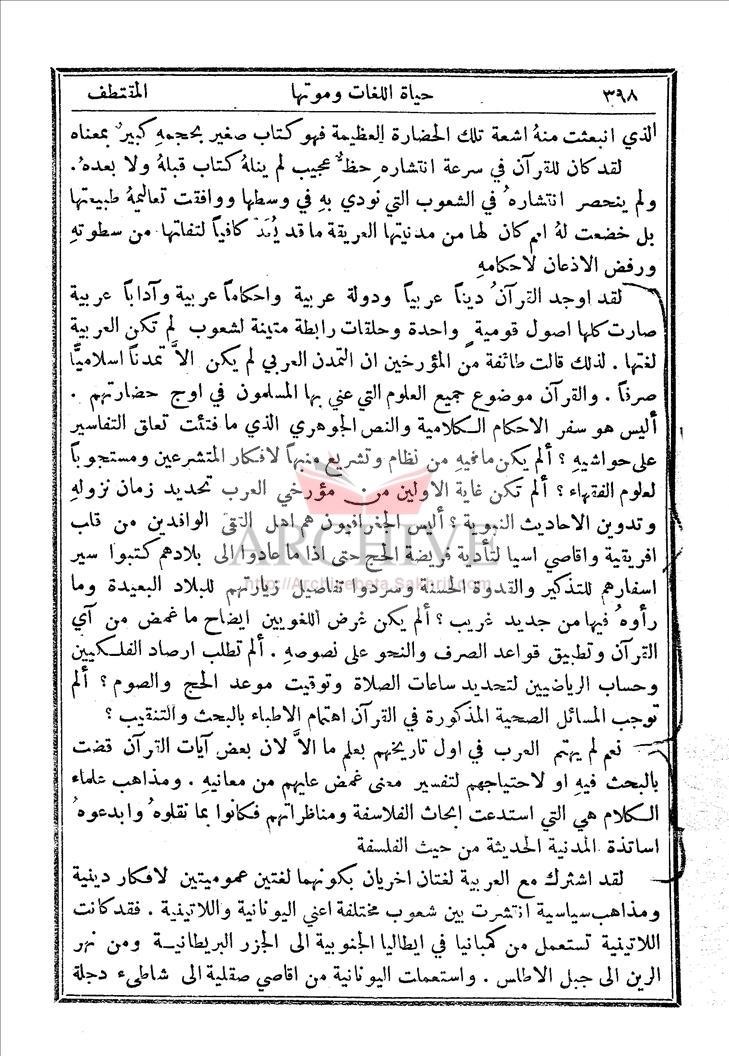 ٣٩٨ حياة اللغات وموتها المقتطف
الذي انبعثت منهُ اشعة تلك الحضارة العظيمة فهو كتاب صغير بحجمهِ كبيرٌ بمعناه
لقد كان للقرآن في سرعة انتشارهِ حظٌّ عجيب لم ينلهُ كتاب قبلهُ ولا بعدهُ.
ولم ينحصر انتشارهُ في الشعوب التي نودي بهِ في وسطها ووافقت تعاليمهُ طبيعتها
بل خضعت لهُ امم كان لها من مدنيتها العريقة ما قد يُعَدّ كافياً لتفاتها من سطوتهِ
ورفض الاذعان لاحكامهِ
لقد اوجد القرآنُ ديناً عربياً ودولة عربية واحكاماً عربية وآداباً عربية
صارت كلها اصول قوميةٍ واحدة وحلقات رابطة متينة لشعوب لم تكن العربية
لغتها . لذلك قالت طائفة من المؤرخين ان التمدن العربي لم يكن الاَّ تمدناً اسلاميًّا
صرفاً . والقرآن موضوع جميع العلوم التي عني بها المسلمون في اوج حضارتهم .
أليس هو سفر الاحكام الكلامية والنص الجوهري الذي ما فتئت تعلق التفاسير
على حواشيهِ ؟ ألم يكن ما فيهِ من نظام وتشريع منبهاً لافكار المتشرعين ومستجوباً
لعلوم الفقهاء ؟ ألم تكن غاية الاولين من مؤرخي العرب تحديد زمان نزولهِ
وتدوين الاحاديث النبوية ؟ أليس الجغرافيون هم اهل التقى الوافدين من قلب
افريقية واقاصي اسيا لتأدية فريضة الحج حتى اذا ما عادوا الى بلادهم كتبوا سير
ARCHIVE
http://Archivebeta.Sakhrit.com
اسفارهم للتذكير والقدوة الحسنة وسردوا تفاصيل زيارتهم للبلاد البعيدة وما
رأوهُ فيها من جديد غريب ؟ ألم يكن غرض اللغويين ايضاح ما غمض من آي
القرآن وتطبيق قواعد الصرف والنحو على نصوصهِ . ألم تطلب ارصاد الفلكيين
وحساب الرياضيين لتحديد ساعات الصلاة وتوقيت موعد الحج والصوم ؟ ألم
توجب المسائل الصحية المذكورة في القرآن اهتمام الاطباء بالبحث والتنقيب ؟
نعم لم يهتم العرب في اول تاريخهم بعلم ما الاَّ لان بعض آيات القرآن قضت
بالبحث فيهِ او لاحتياجهم لتفسير معنى غمض عليهم من معانيهِ . ومذاهب علماء
الكلام هي التي استدعت ابحاث الفلاسفة ومناظراتهم فكانوا بما نقلوهُ وابدعوهُ
اساتذة المدنية الحديثة من حيث الفلسفة
لقد اشترك مع العربية لغتان اخريان بكونهما لغتين عموميتين لافكار دينية
ومذاهب سياسية انتشرت بين شعوب مختلفة اعني اليونانية واللاتينية . فقد كانت
اللاتينية تستعمل من كمبانيا في ايطاليا الجنوبية الى الجزر البريطانية ومن نهر
الرين الى جبل الاطلس . واستعملت اليونانية من اقاصي صقلية الى شاطىء دجلة